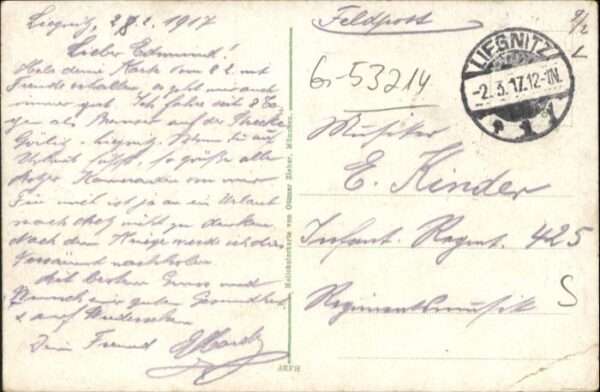 Liegnitz, 28.2.1917
Lieber Edmund!
Habe deine Karte vom 8.2. mit
Freude erhalten, es geht mir auch
immer gut. Ich fahre seit 8 Ta-
gen als Bremser auf der Strecke
Görlitz - Liegnitz. Wenn du auf
Urlaub fährst, so grüße alle
Kameraden von mir
Für mich ist ja an ein Urlaub
nach nicht zu denken.
Nach dem Kriege werde ich dies
Versäumte nachholen.
Mit besten Gruss und
Wunsch ein guten Gesundheit
u. auf Wiedersehen
Dein Freund
Feldpost
LIEGNITZ
-2.3.17.12-1N.
1
G-53214
Musiker
E. Kinder
Infant. Regmt. 425
Regimentsmusik
S
Heliokolorkarte von Ottmar Zieher, München.